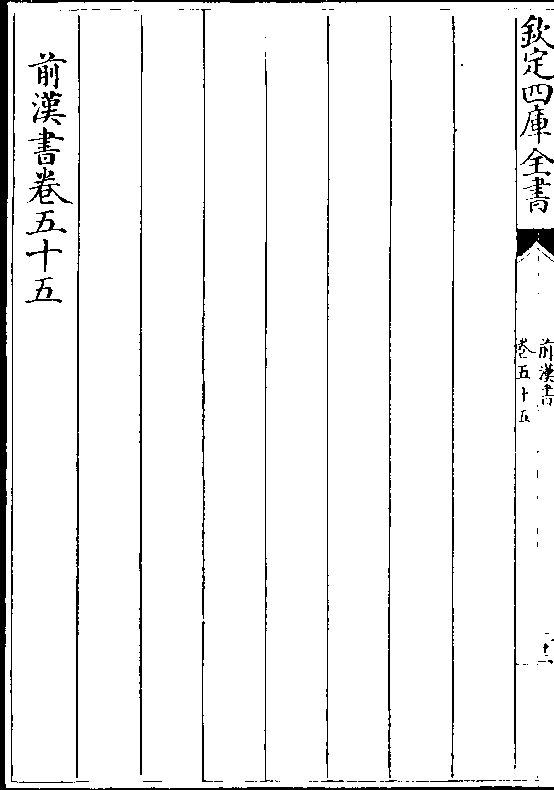 欽定四庫全書
前漢書
卷五十五
前漢書卷五十五